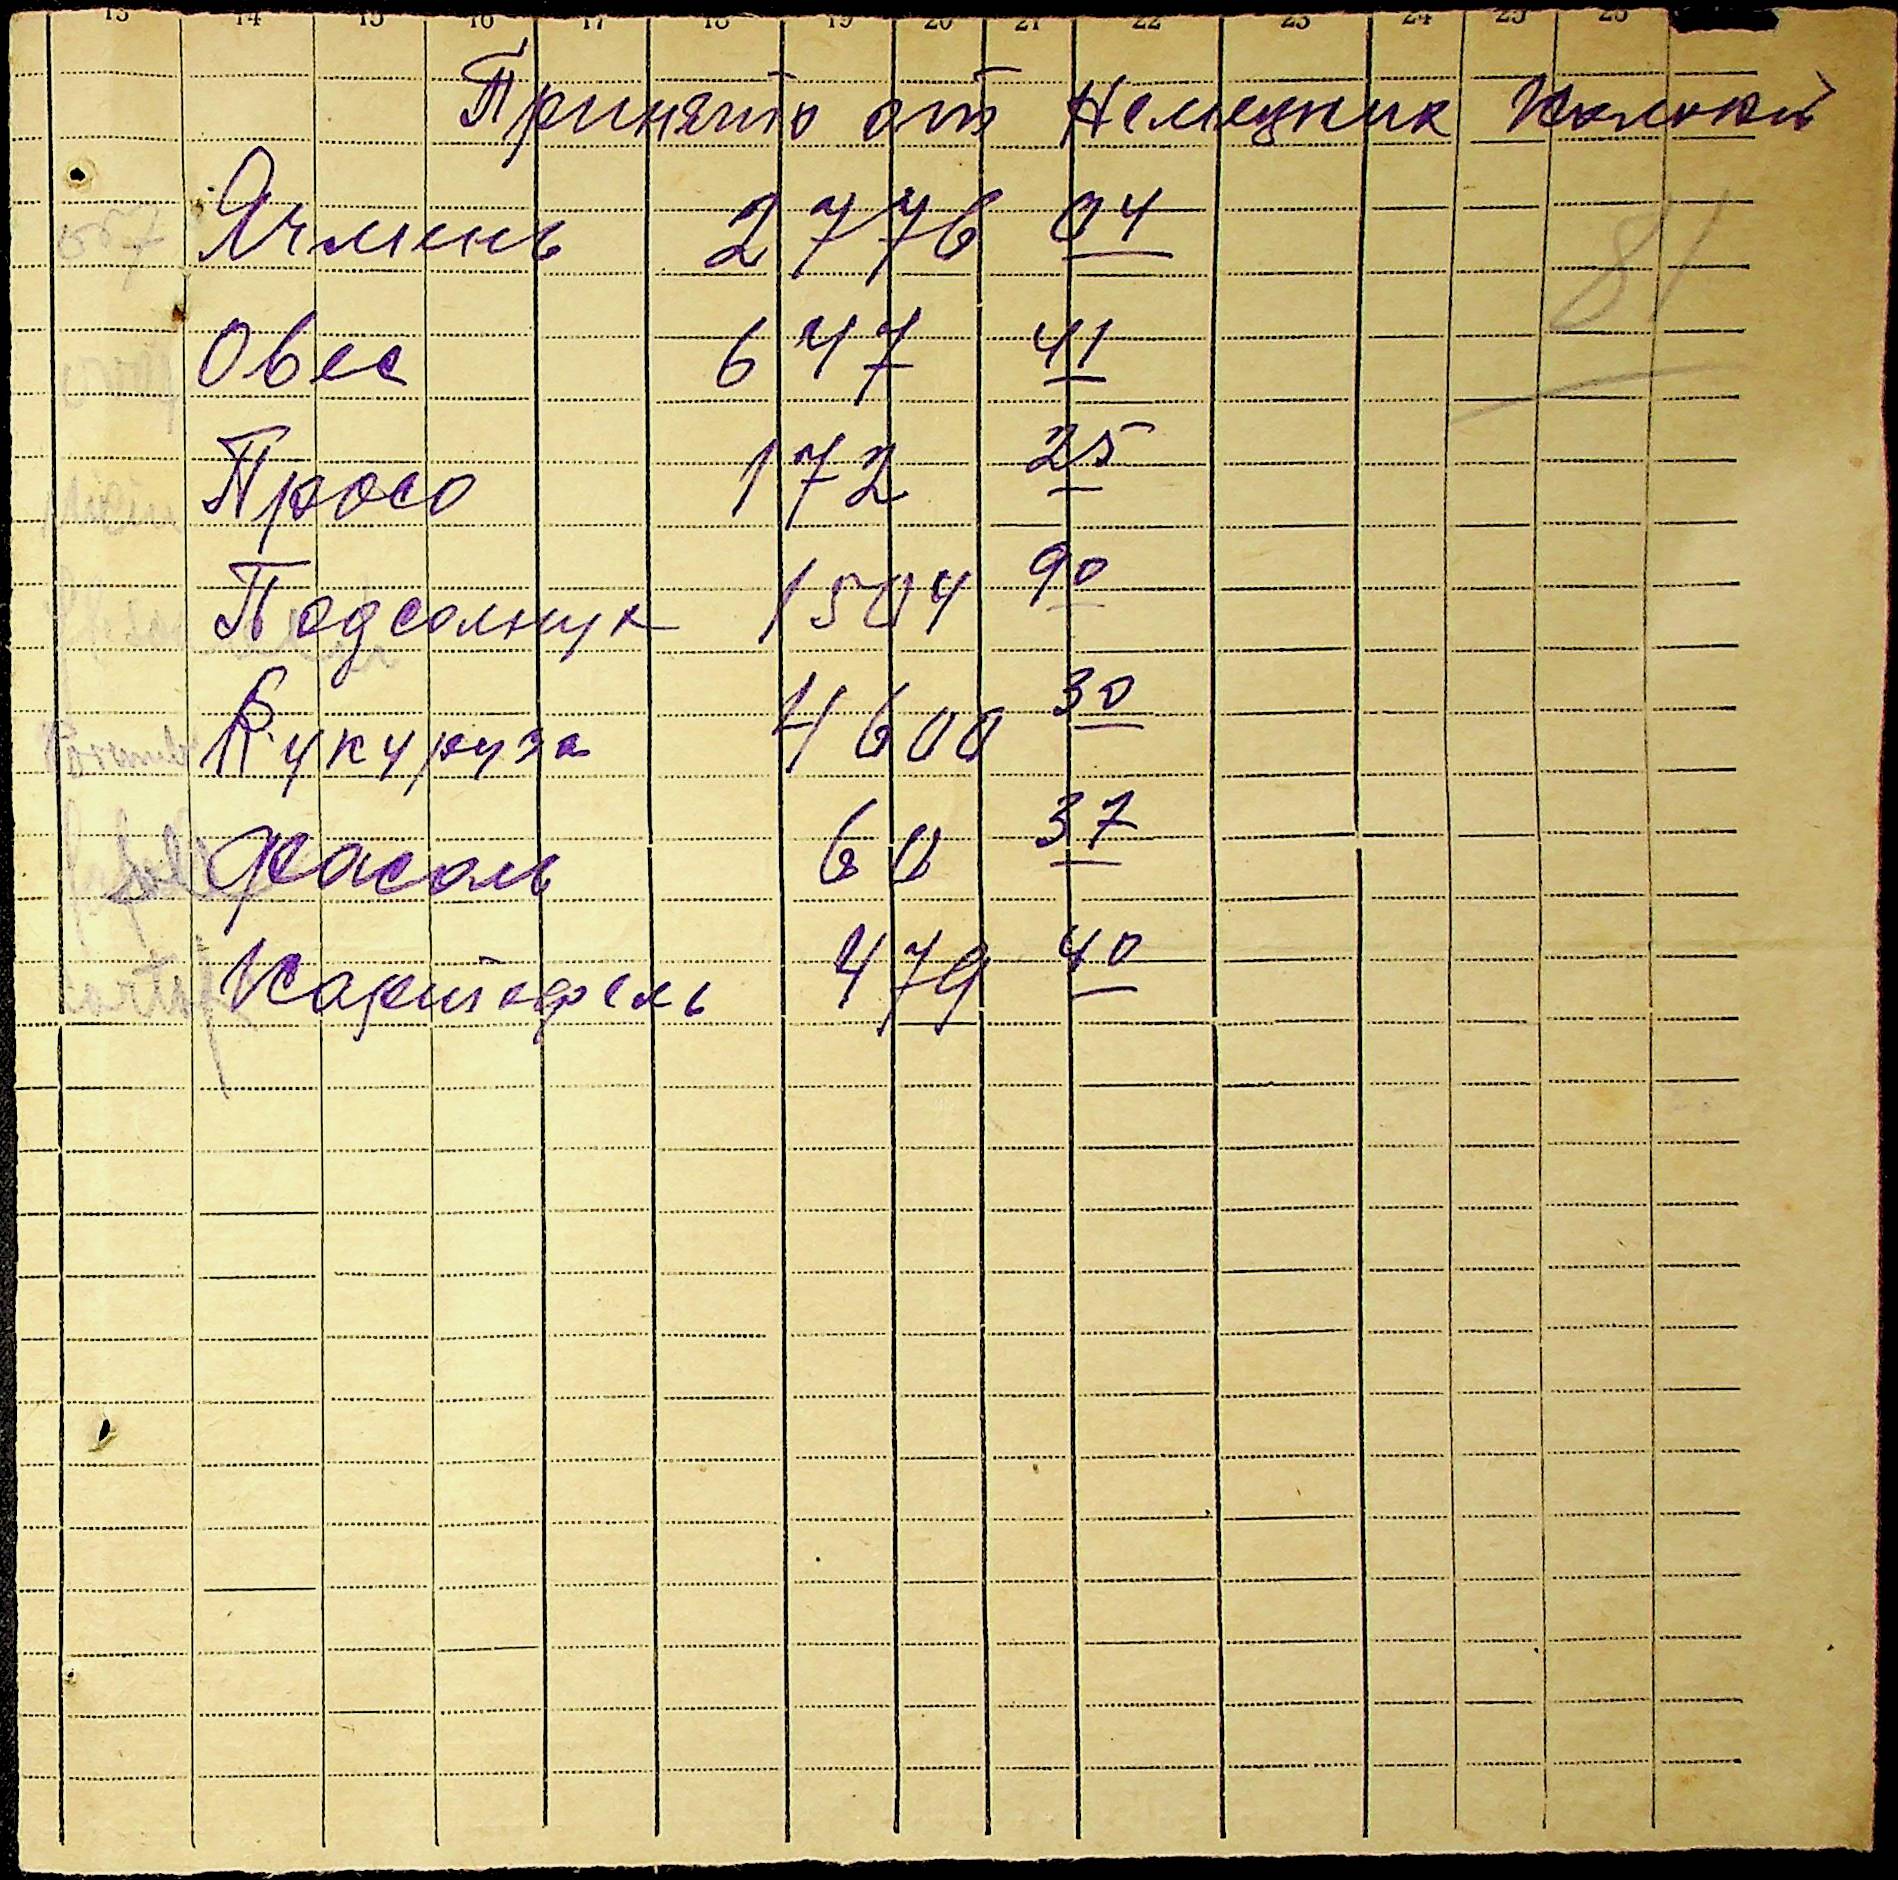 13 14 15 16 17 18 19 20 21 22 23 24 25 26
Принято от Немецких Колоний
81
orz Ячмень 2776 04
Овес 647 41
Просо 172 25
Подсолнук 1504 90
Porumb Кукуруза 4600 30
fasole Фасоль 60 37
cartof Картофель 479 40